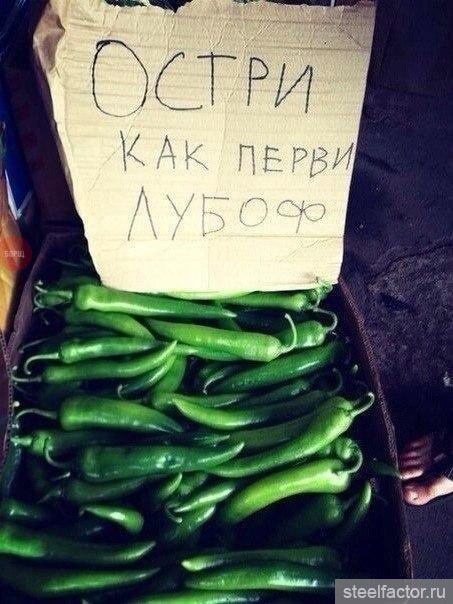 ОСТРИ
КАК ПЕРВИ
ЛУБОФ
БОРЩ
steelfactor.ru